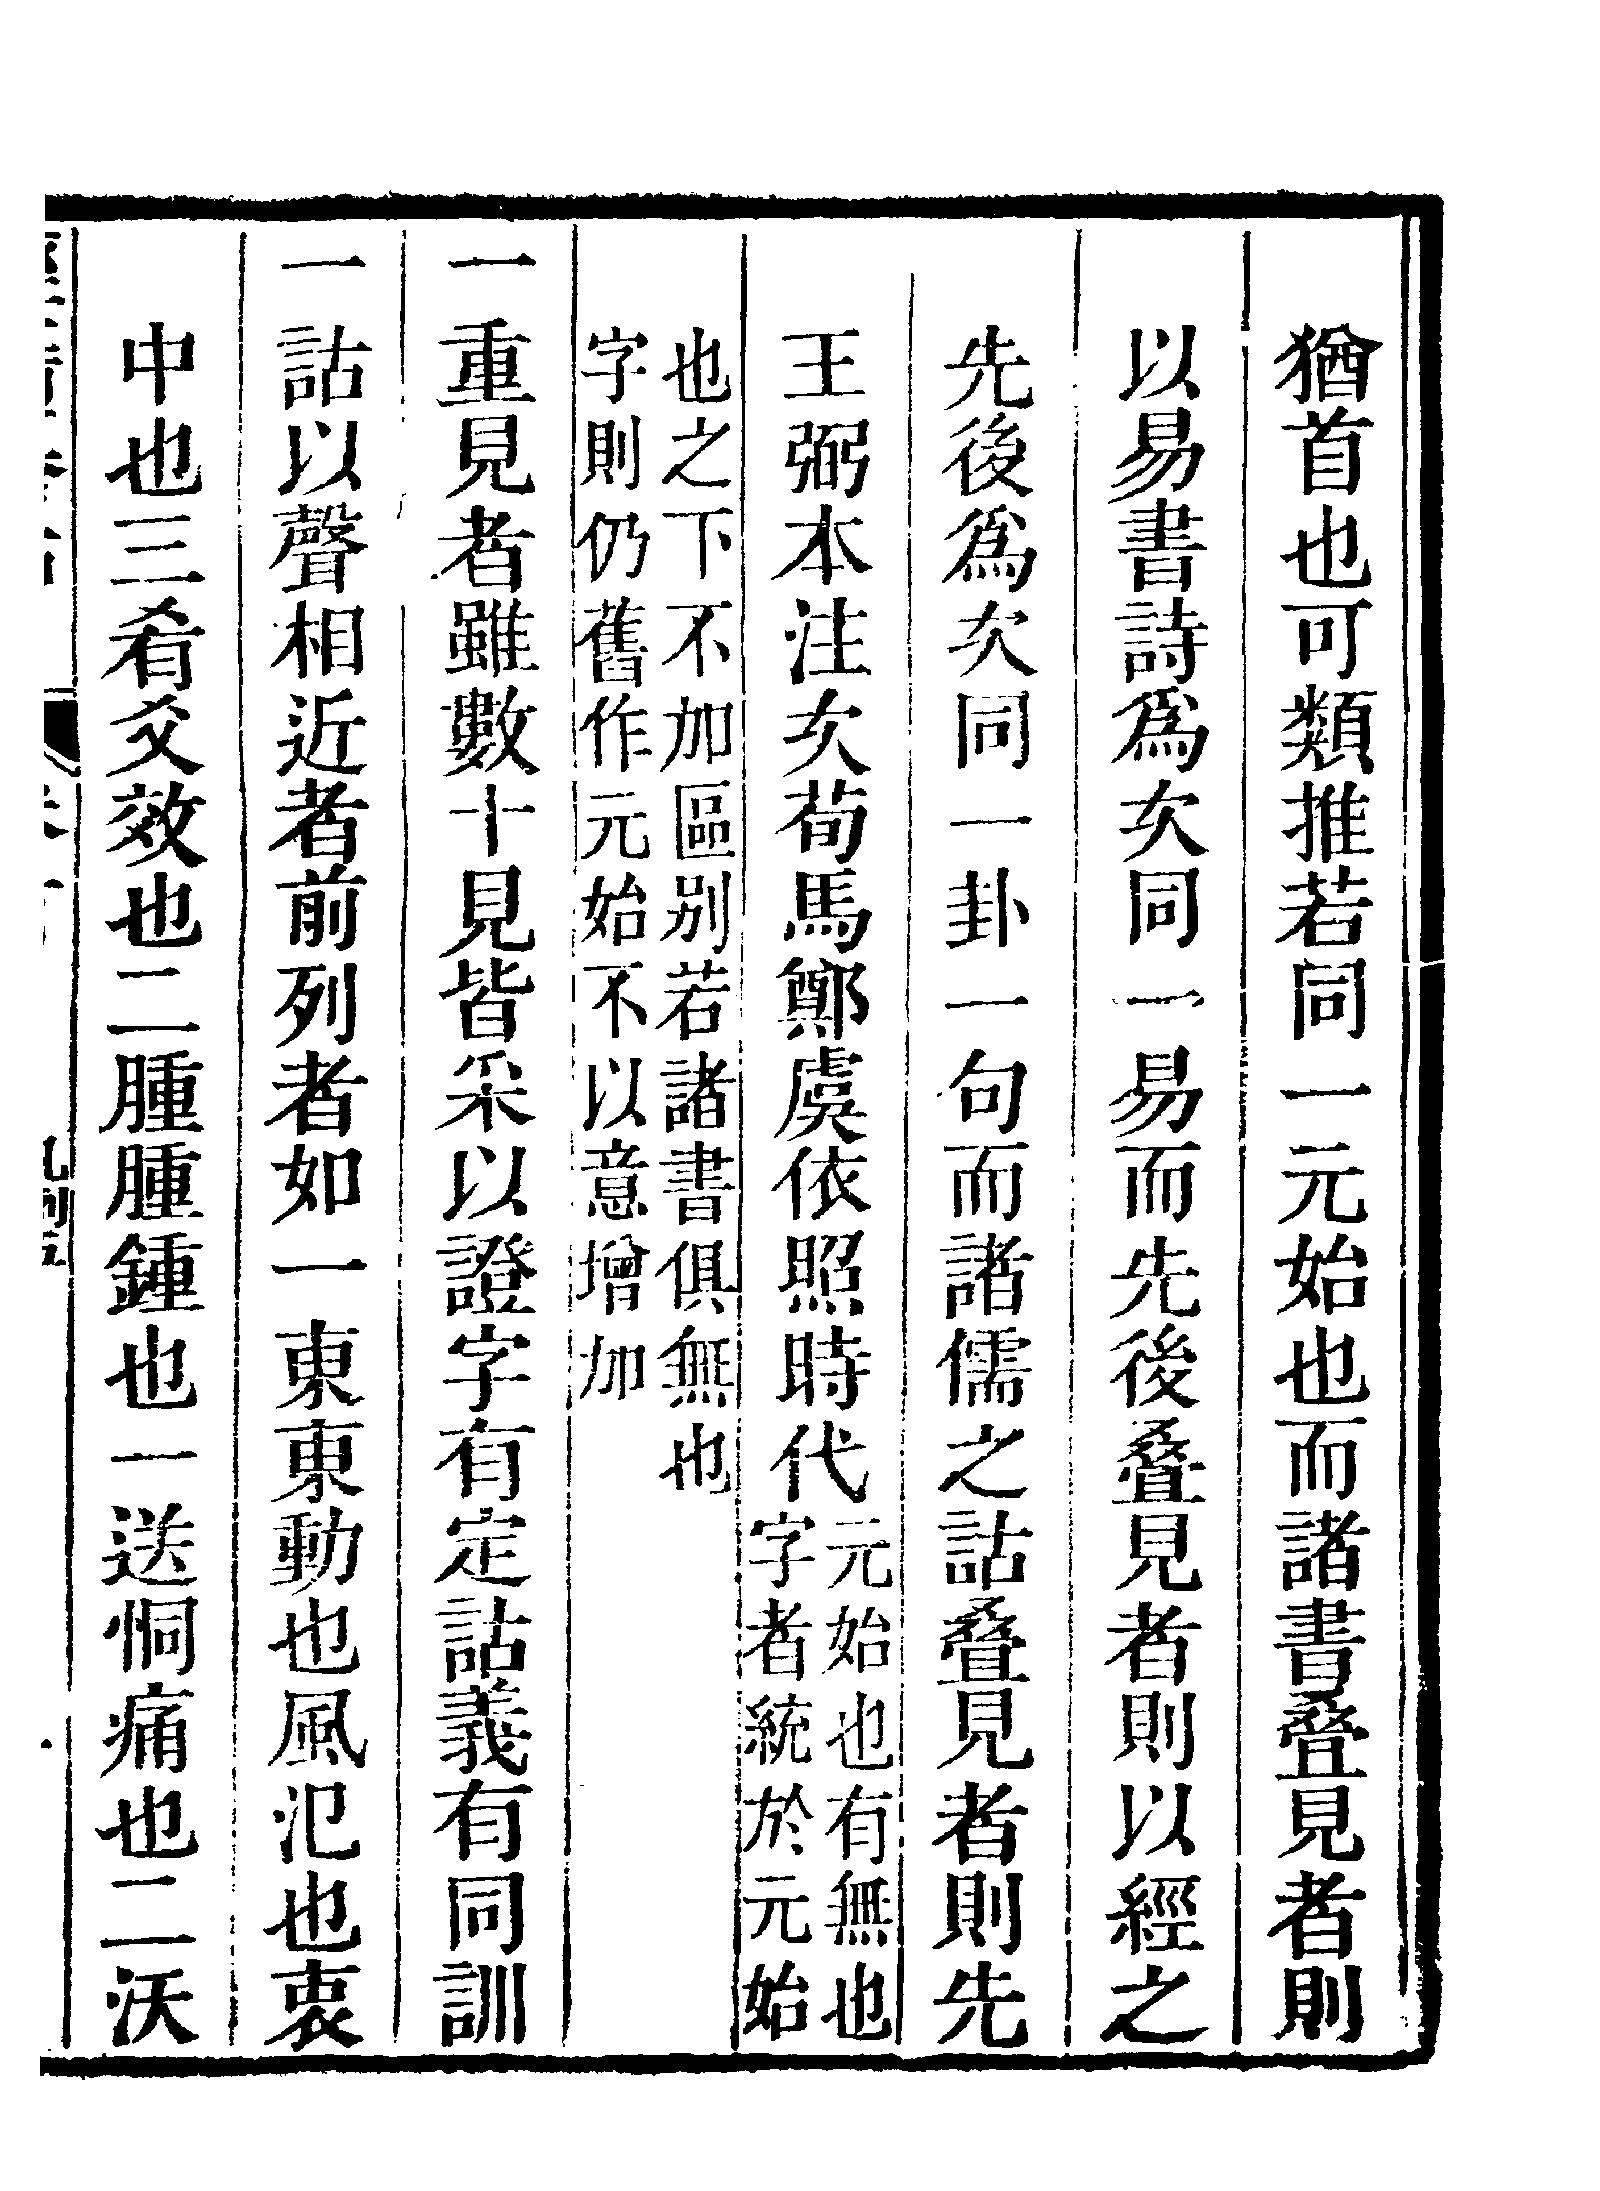 猶首也可類推若同一元始也而諸書叠見者則
以易書詩爲次同一易而先後叠見者則以經之
先後爲次同一卦一句而諸儒之詁叠見者則先
王弼本注次荀馬鄭虞依照時代元始也有無也
字者統於元始
也之下不加區別若諸書俱無也
字則仍舊作元始不以意增加
一重見者雖數十見皆采以證字有定詁義有同訓
一詁以聲相近者前列者如一東東動也風氾也衷
中也三肴爻效也二腫腫鍾也一送恫痛也二沃